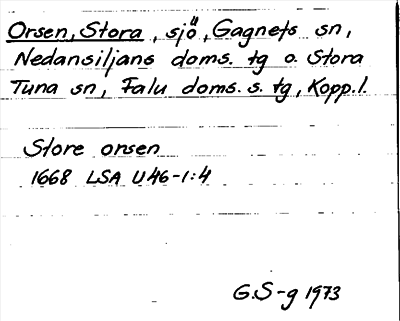 Orsen, Stora, sjö, Gagnefs sn,
Nedansiljans doms. tg o. Stora
Tuna sn, Falu doms. s. tg, Kopp.l.
Store orsen
1668 LSA U46-1:4
G.S-g 1973